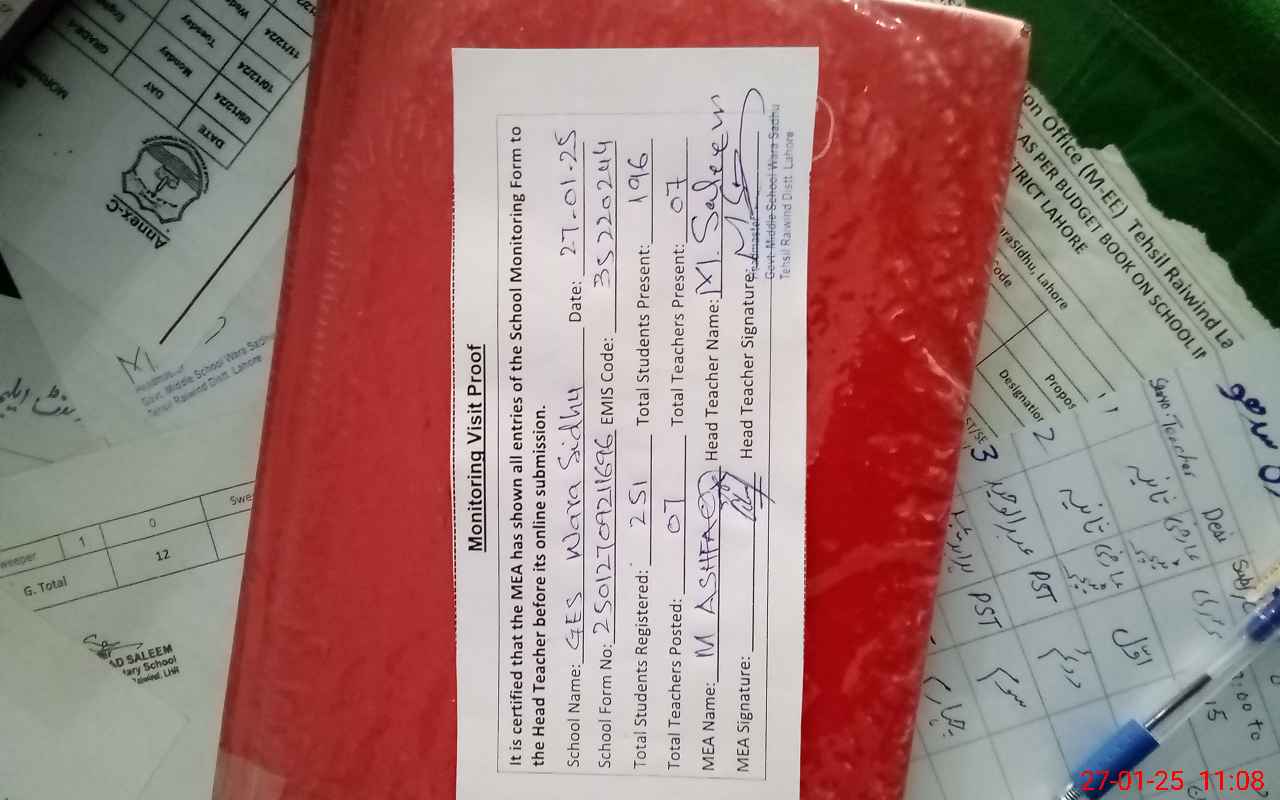 Monitoring Visit Proof
It is certified that the MEA has shown all entries of the School Monitoring Form to
the Head Teacher before its online submission.
School Name: GES Wara Sidhu Date: 27-01-25
School Form No: 250127094211696 EMIS Code: 35220244
Total Students Registered: 251 Total Students Present: 196
Total Teachers Posted: 07 Total Teachers Present: 07
MEA Name: M ASHFAQ Head Teacher Name: M. Saleem
MEA Signature: Head Teacher Signature:
Headmaster
Govt. Middle School Wara Sadhu
Tehsil Raiwind Distt. Lahore
Annex-C
DATE DAY GRADE-
09/12/24 Monday
10/12/24 Tuesday
11/12/24
MORN
Govt. Middle School Wara Sadhu
Tehsil Raiwind Distt. Lahore
weeper 1 0 Swe
G. Total 12
AD SALEEM
tary School
Raiwind, LHR
on Office (M-EE) Tehsil Raiwind La
AS PER BUDGET BOOK ON SCHOOL II
TRICT LAHORE
raSidhu, Lahore
Code
Propos
Designation
ST/SE
Teacher
Desi
2
3
عبدالوحید
PST
PST
اوّل
دوئم
سوئم
چہارم
00 to
15
27-01-25 11:08